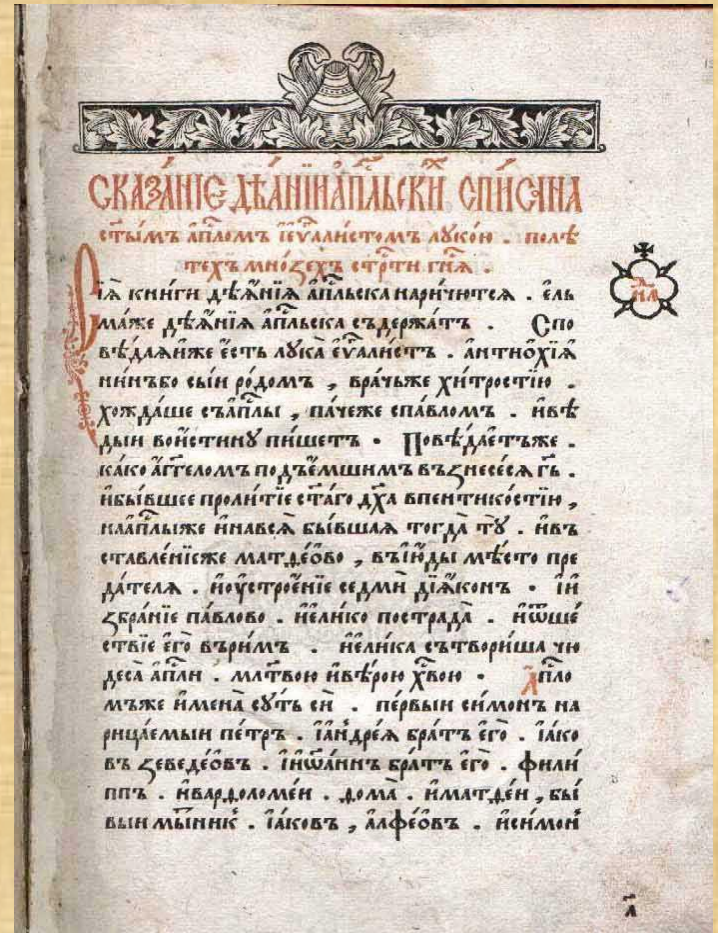 СКАЗА́НІЕ ДѢА́НІИ А҆Пⷭ҇ЛЬСКИ СПИ́САНА
ст҃ы́мъ а҆пⷭ҇ломъ і҆є҆ѵⷢ҇али́стомъ лꙋко́ю . полѣ
тѣхъ мно́зѣхъ стрⷭ҇ти гнⷭ҇ѧ .
Сїѧ̀ кни́ги дѣѧ҆́нїѧ а҆пⷭ҇льска нарича́ютсѧ . є҆ль
ма́же дѣѧ҆́нїѧ а҆пⷭ҇льска съдержа́тъ . Спо
вѣ́даѧ и҆́же є҆́сть лꙋка̀ є҆ѵⷢ҇али́стъ . а҆нтиѡ҆хїѧ
ни́нъбо сы́и ро́домъ , вра́чьже хи́тростїю .
хожда́ше съа҆пⷭ҇лы , па́чеже спа́вломъ . и҆вѣ́
ды́и вои́стинꙋ пи́шетъ . Повѣ́даетъже .
ка́ко а҆́гг҃еломъ подъе́мшимъ възнесе́сѧ гь҃ .
и҆бы́вшее проли́тїе ст҃а́го дх҃а впентико́стїю ,
наа҆пⷭ҇лыже и҆навсѧ̀ бы́вшаѧ тогда̀ тꙋ̀ . и҆въ
ставле́нїеже матѳе́ѡво , въїю҆́ды мѣ́сто пре
да́телѧ . и҆оу҆строе́нїе седмѝ дїѧ́конъ . и҆и
збра́нїе па́влово . и҆є҆ли́ко пострада̀ . и҆ѿше́
ствїе є҆гѡ̀ въри́мъ . и҆є҆ли́ка сътвори́ша чю
деса̀ а҆пⷭ҇ли . мл҃твою и҆вѣ́рою хв҃ою . А҆пⷭ҇ло
мъже и҆мена̀ сꙋ́ть сѝ . пе́рвыи си́монъ на
рица́емыи пе́тръ . і҆а҆ндре́ѧ бра́тъ є҆гѡ̀ . і҆а́ко
въ зеведе́ѡвъ . і҆и҆ѡа́ннъ бра́тъ є҆гѡ̀ . фили́
ппъ . и҆варѳоломе́и . ѳома̀ . и҆матѳе́и , бы́
выи мы́тникъ . і҆а́ковъ , а҆лфе́ѡвъ . и҆си́монъ
а҃